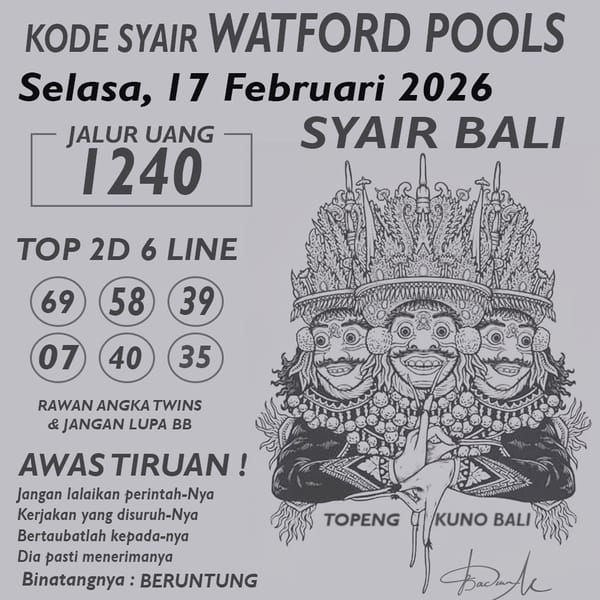 KODE SYAIR WATFORD POOLS
Selasa, 17 Februari 2026
JALUR UANG
1240
SYAIR BALI
TOP 2D 6 LINE
69 58 39
07 40 35
RAWAN ANGKA TWINS
& JANGAN LUPA BB
AWAS TIRUAN !
Jangan lalaikan perintah-Nya
Kerjakan yang disuruh-Nya
Bertaubatlah kepada-nya
Dia pasti menerimanya
Binatangnya : BERUNTUNG
TOPENG KUNO BALI